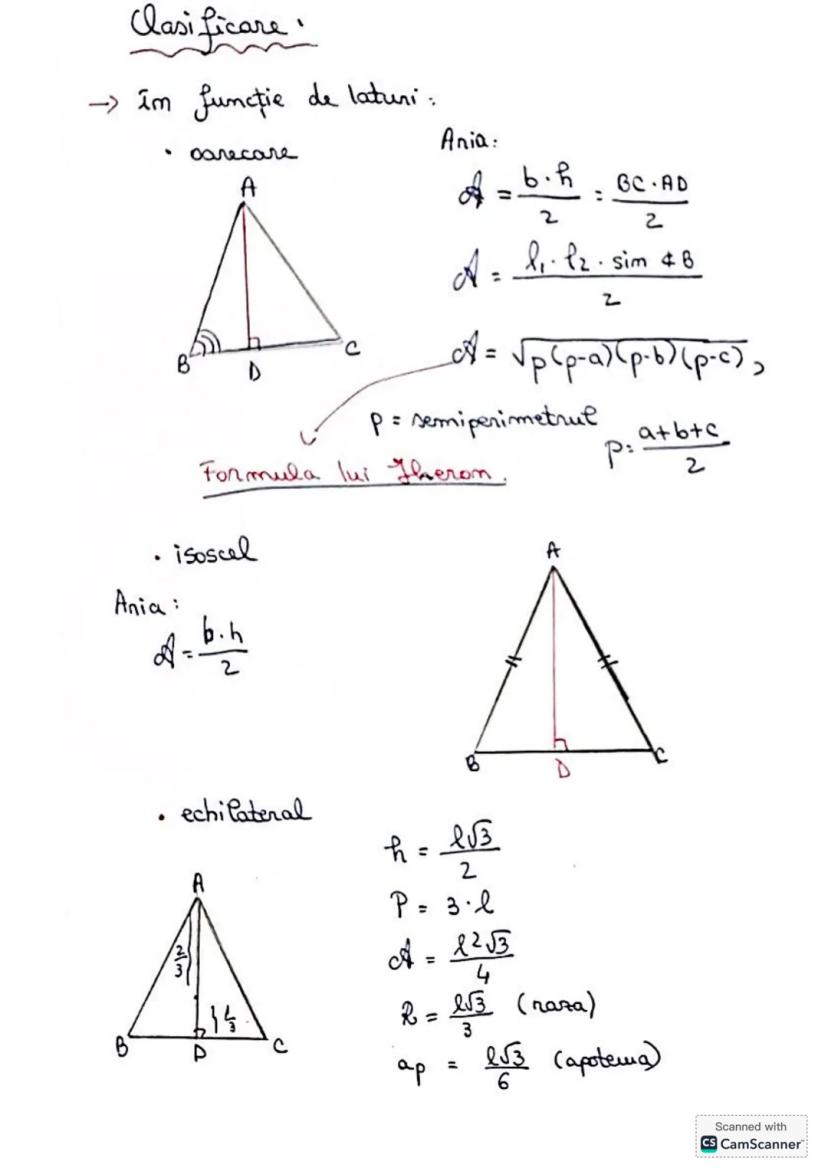 Clasificare.
→ În funcție de laturi:
• oarecare
A
B
D
C
Aria:
A = b·h / 2 = BC·AD / 2
A = l₁·l₂·sin ∢B / 2
A = √p(p-a)(p-b)(p-c),
p = semiperimetrul
p = a+b+c / 2
Formula lui Heron.
• isoscel
Aria:
A = b·h / 2
A
B
D
C
• echilateral
A
2/3
1/3
B
D
C
h = l√3 / 2
P = 3·l
A = l²√3 / 4
R = l√3 / 3 (raza)
ap = l√3 / 6 (apotema)
Scanned with
CS CamScanner